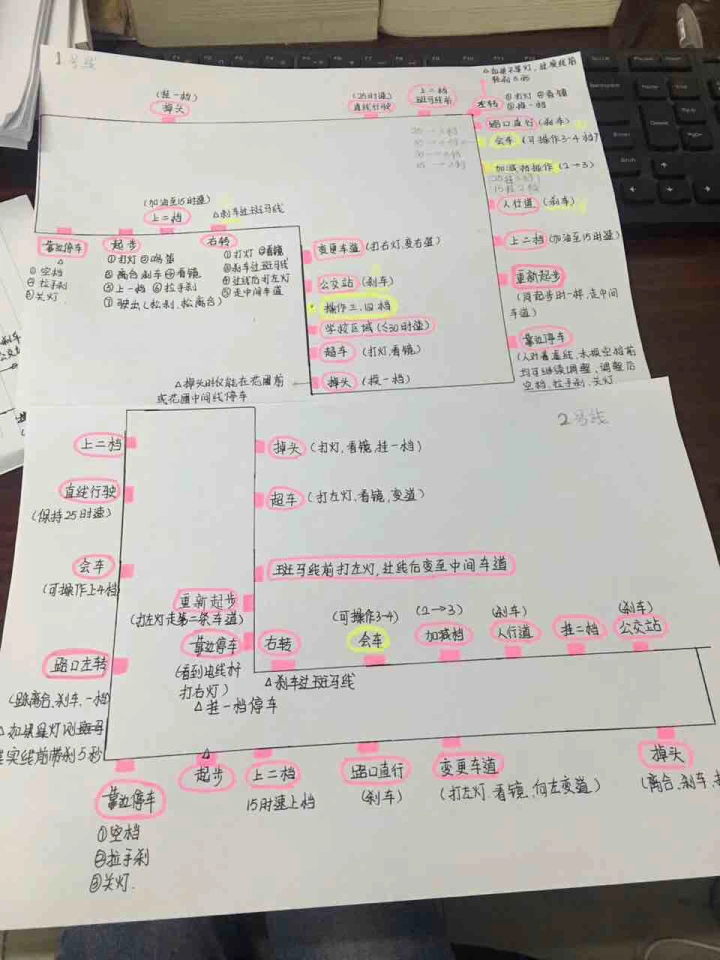 1号线
(挂一档)
掉头
(25时速)
直线行驶
上二档
斑马线前
左转
①打灯 ②看镜
③换一档
路口直行 (刹车)
会车 (可操作3-4档)
加减档操作 (2→3)
人行道 (刹车)
上二档 (加油至15时速)
重新起步
(跟起步时一样,走中间
车道)
靠边停车
(加油至15时速)
上二档
△刹车过斑马线
靠边停车
△
①空档
②拉手刹
③关灯.
起步
①打灯 ②鸣笛
③离合刹车 ④看镜
⑤上一档 ⑥拉手刹
⑦驶出(松刹,松离合)
右转
①打灯 ②看镜
③刹车过斑马线
④过线后打左灯
⑤走中间车道
变更车道 (打右灯,变右道)
公交站 (刹车)
操作三、四档
学校区域 (≤30时速)
超车 (打灯,看镜)
掉头 (换一档)
△掉头时仅能在花圃前
或花圃中间线停车
空档,拉手刹,关灯
2号线
上二档
直线行驶
(保持25时速)
会车
(可操作上4档)
路口左转
(踩离合,刹车,一档)
掉头 (打灯,看镜,挂一档)
超车 (打左灯,看镜,变道)
斑马线前打左灯,过线后变至中间车道
重新起步
(打左灯走第二条车道)
靠边停车
打右灯)
△挂一档停车
右转
△刹车过斑马线
(可操作3-4)
会车
(2→3)
加减档
(刹车)
人行道
挂二档
(刹车)
公交站
靠边停车
①空档
②拉手刹
③关灯.
△
起步
上二档
15时速上档
路口直行
(刹车)
变更车道
(打左灯,看镜,向左变道)
掉头
(离合,刹车,